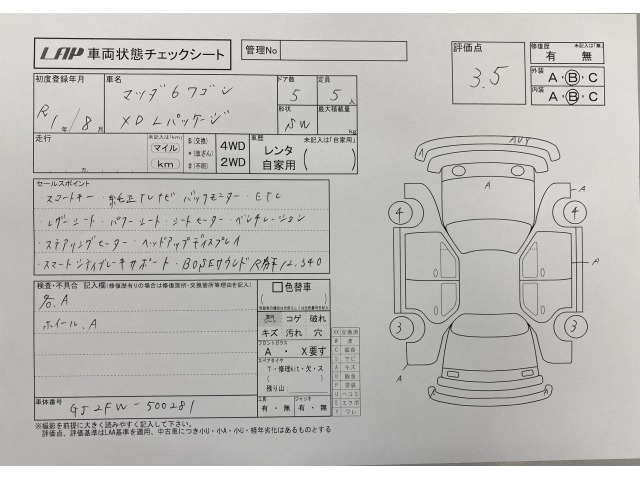 LAP 車両状態チェックシート
管理No
評価点
3.5
修復歴 未記入は「無」
有 無
外装 A・B・C
内装 A・B・C
初度登録年月
R1年/8月
車名
マツダ6ワゴン
XD Lパッケージ
ドア数
5
定員
5人
形状
SW
最大積載量
kg
走行
未記入は「km」
マイル
km
万
$(交換)
*(改ざん)
#(不明)
4WD
2WD
車歴 未記入は「自家用」
レンタ
自家用
セールスポイント
スマートキー・純正TVナビ バックモニター・ETC
・レザーシート・パワーシート・シートヒーター・ベンチレーション
・ステアリングヒーター・ヘッドアップディスプレイ
・スマートシティブレーキサポート・BOSEサウンド R済¥12,540
検査・不具合 記入欄(修復歴有りの場合は修復箇所・交換箇所等理由を記入)
ホイール.A
色替車
コゲ 破れ
キズ 汚れ 穴
フロントガラス
A ・ X要す
スペアタイヤ
T・修理kit・欠・ス
残り山:
工具
有・無
ジャッキ
有・無
XX 交換済
W 波
C 腐食
S サビ
A キズ
B 鈑金
P 塗装
U ヘコミ
E エクボ
Y ワレ
車体番号
GJ2FW-500281
※撮影を前提に大きく読みやすく記入して下さい。
評価点、評価基準はLAA基準を適用、中古車につき小U・小A・小U・経年劣化はあるものとする
A
AUY
A
A
4
4
A
3
3
A
A